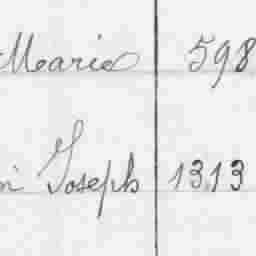 Marie 598
Joseph 1313